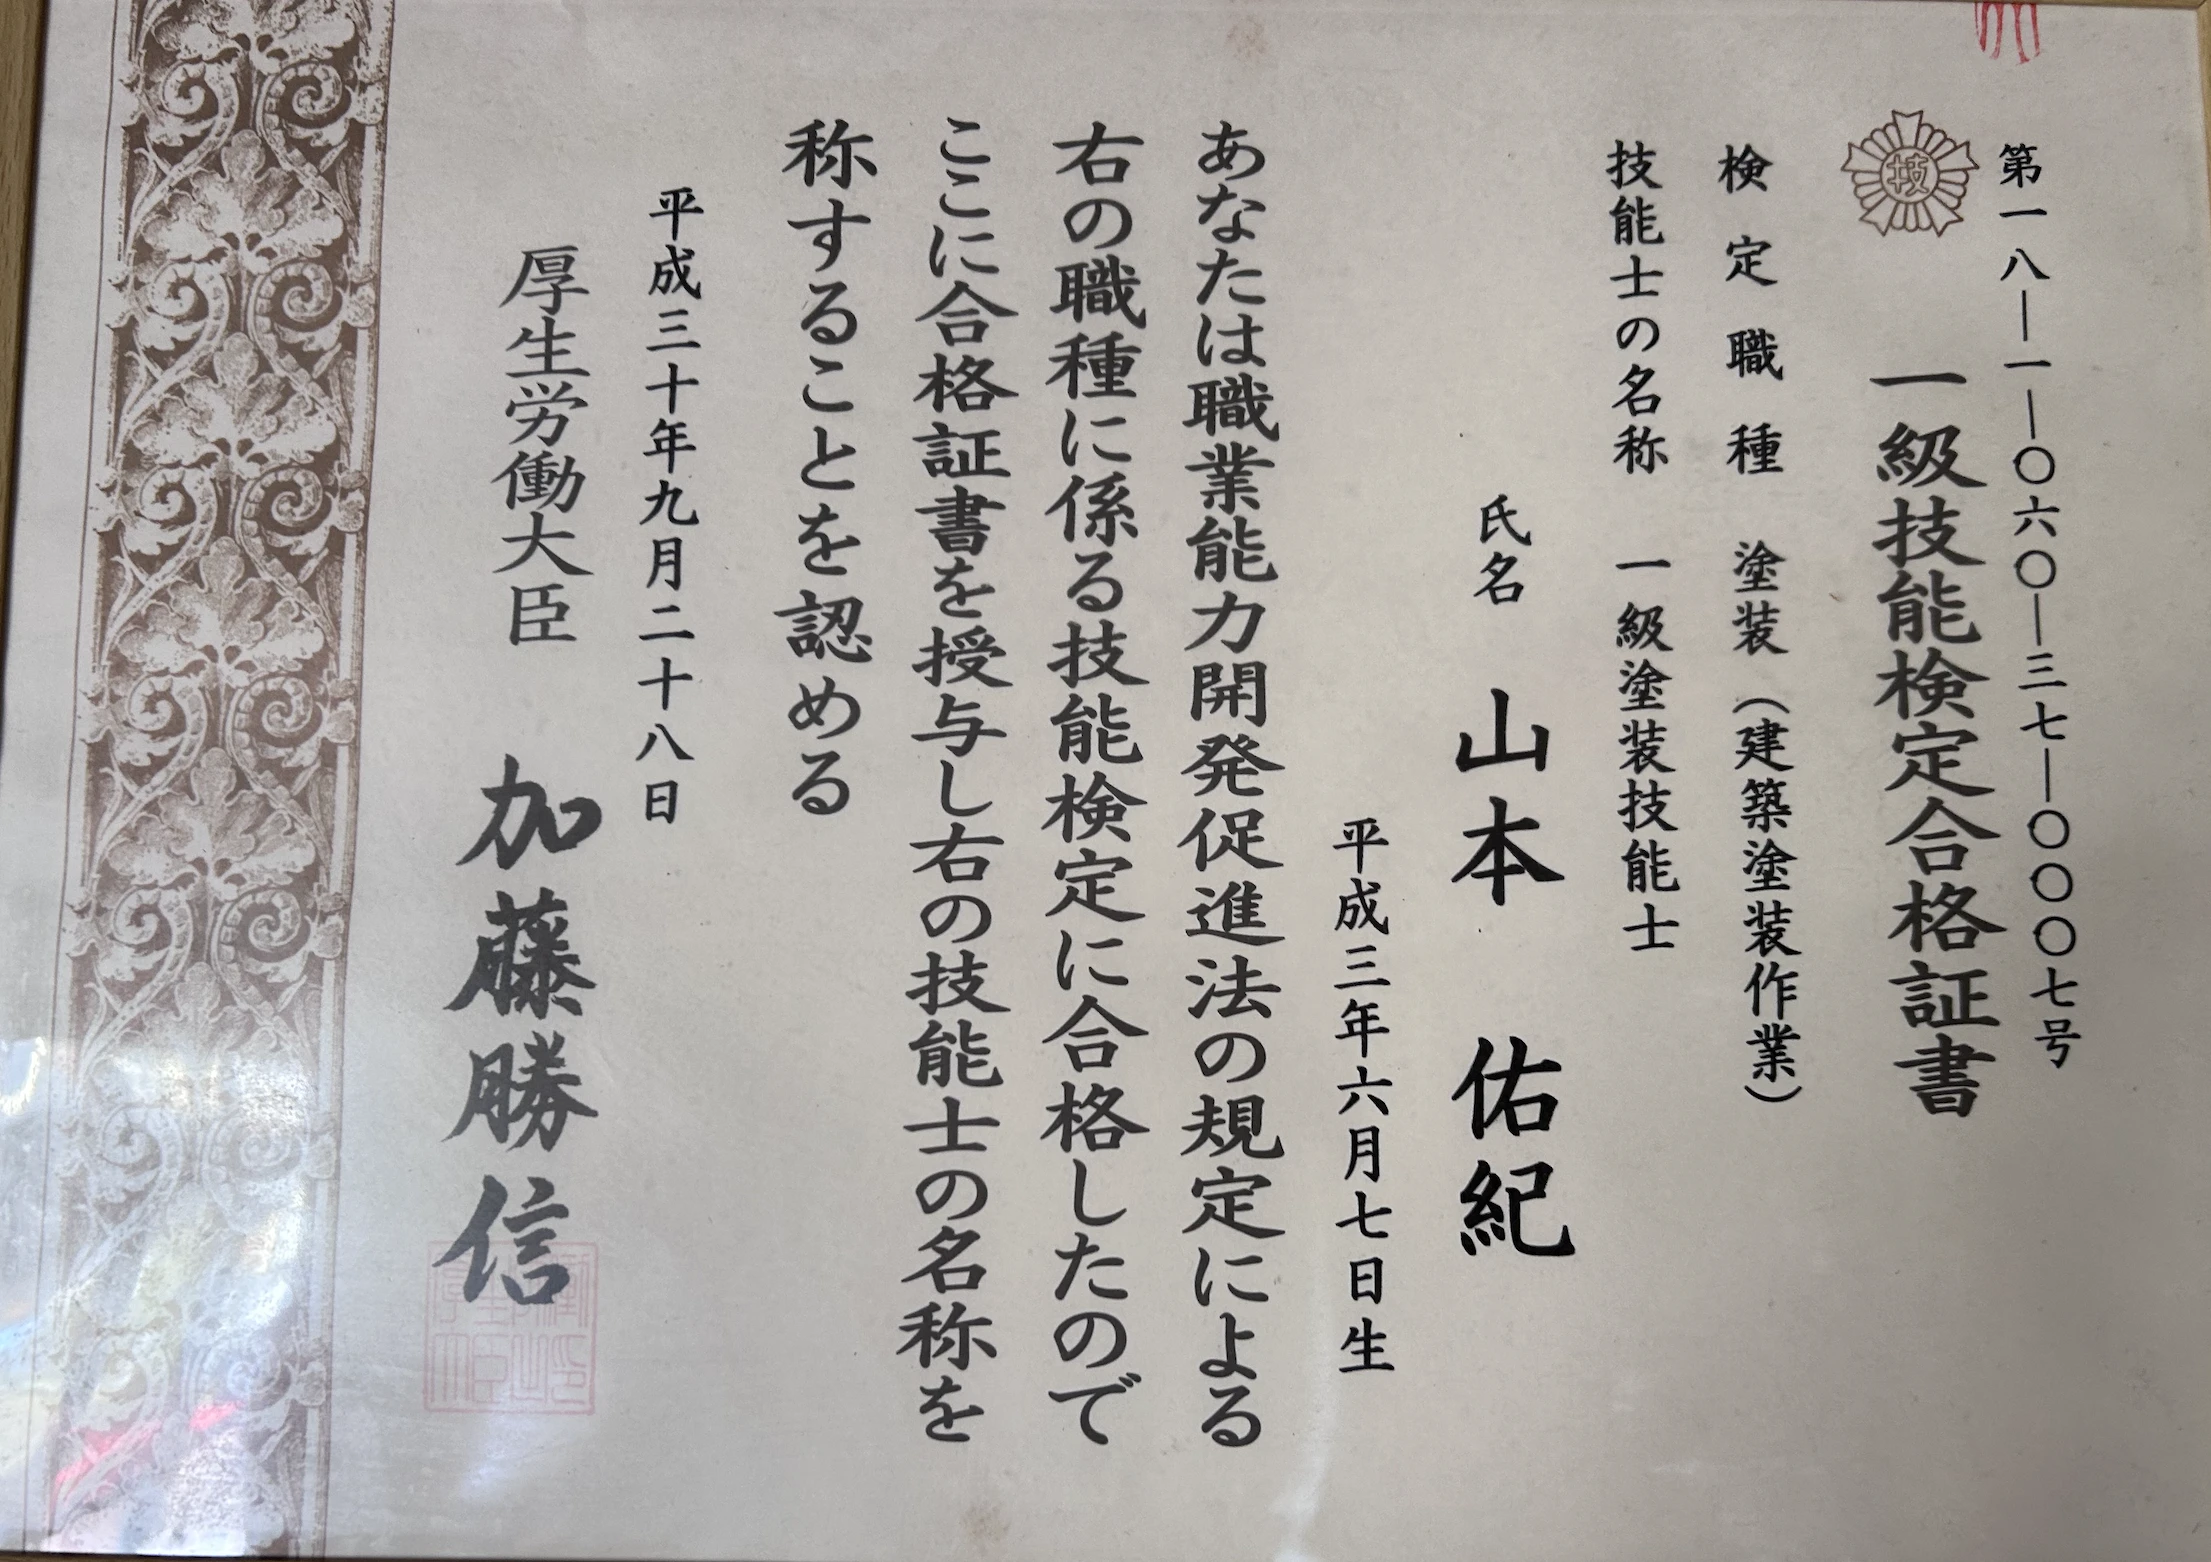 第一八―一―〇六〇―三七―〇〇〇七号
技
一級技能検定合格証書
検定職種 塗装（建築塗装作業）
技能士の名称 一級塗装技能士
氏名 山本 佑紀
平成三年六月七日生
あなたは職業能力開発促進法の規定による
右の職種に係る技能検定に合格したので
ここに合格証書を授与し右の技能士の名称を
称することを認める
平成三十年九月二十八日
厚生労働大臣 加藤勝信